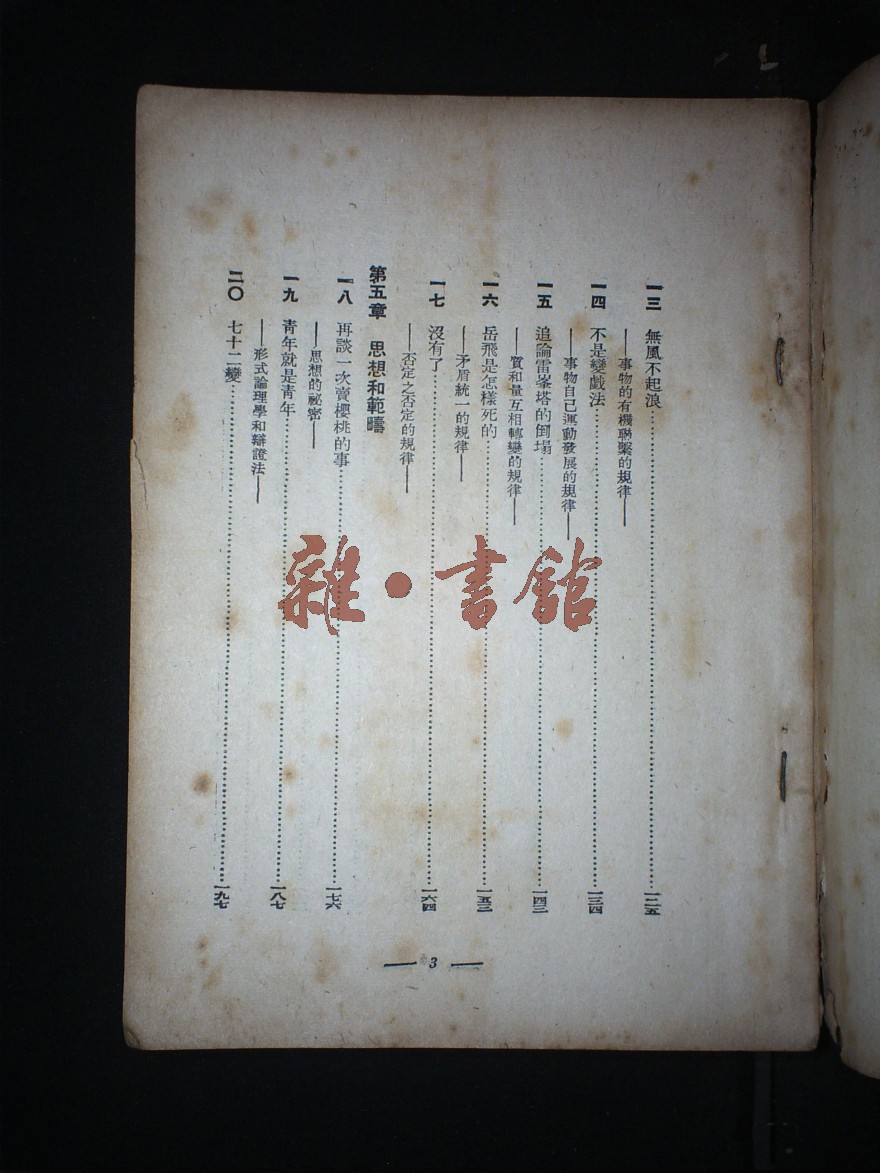 一三 無風不起浪…………一二五
——事物的有機聯繫的規律——
一四 不是變戲法…………一三四
——事物自己運動發展的規律——
一五 追論雷峯塔的倒塌…………一四三
——質和量互相轉變的規律——
一六 岳飛是怎樣死的…………一五三
——矛盾統一的規律——
一七 沒有了…………一六四
——否定之否定的規律——
第五章 思想和範疇
一八 再談一次賣櫻桃的事…………一七六
——思想的祕密——
一九 青年就是青年…………一八七
——形式論理學和辯證法——
二〇 七十二變…………一九七
— 3 —
雜·書館